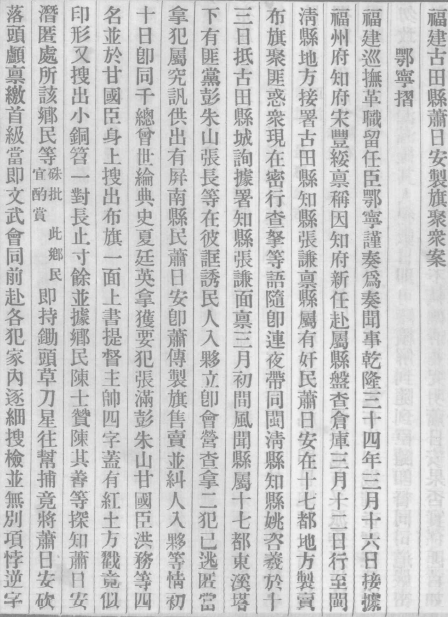 福建古田縣蕭日安製旗聚衆案
鄂寧摺
福建巡撫革職留任臣鄂寧謹奏爲奏聞事乾隆三十四年三月十六日接據
福州府知府宋豐綏稟稱因知府新任赴屬縣盤查倉庫三月十二日行至閩
清縣地方接署古田縣知縣張謙稟縣屬有奸民蕭日安在十七都地方製賣
布旗聚匪惑衆現在密行查拏等語隨卽連夜帶同閩清縣知縣姚咨羲於十
三日抵古田縣城詢據署知縣張謙面稟三月初間風聞縣屬十七都東溪塔
下有匪黨彭朱山張長等在彼誆誘民人入夥立卽會營查拿二犯已逃匿當
拿犯屬究訊供出有屏南縣民蕭日安卽蕭傳製旗售賣並糾人入夥等情初
十日卽同千總曾世綸典史夏廷英拿獲要犯張滿彭朱山甘國臣洪務等四
名並於甘國臣身上搜出布旗一面上書提督主帥四字蓋有紅土方戳竟似
印形又搜出小銅笤一對長止寸餘並據鄉民陳士贊陳其春等探知蕭日安
潛匿處所該鄉民等硃批此鄉民宜酌賞卽持鋤頭草刀星往幫捕竟將蕭日安砍
落頭顱稟繳首級當卽文武會同前赴各犯家內逐細搜檢並無別項悖逆字